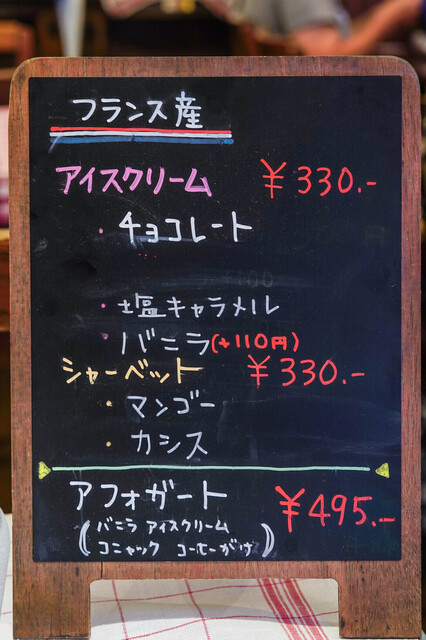 フランス産
アイスクリーム ¥330.-
・チョコレート
・塩キャラメル
・バニラ(+110円)
シャーベット ¥330.-
・マンゴー
・カシス
アフォガート ¥495.-
(バニラ アイスクリーム
コニャック コーヒーがけ)